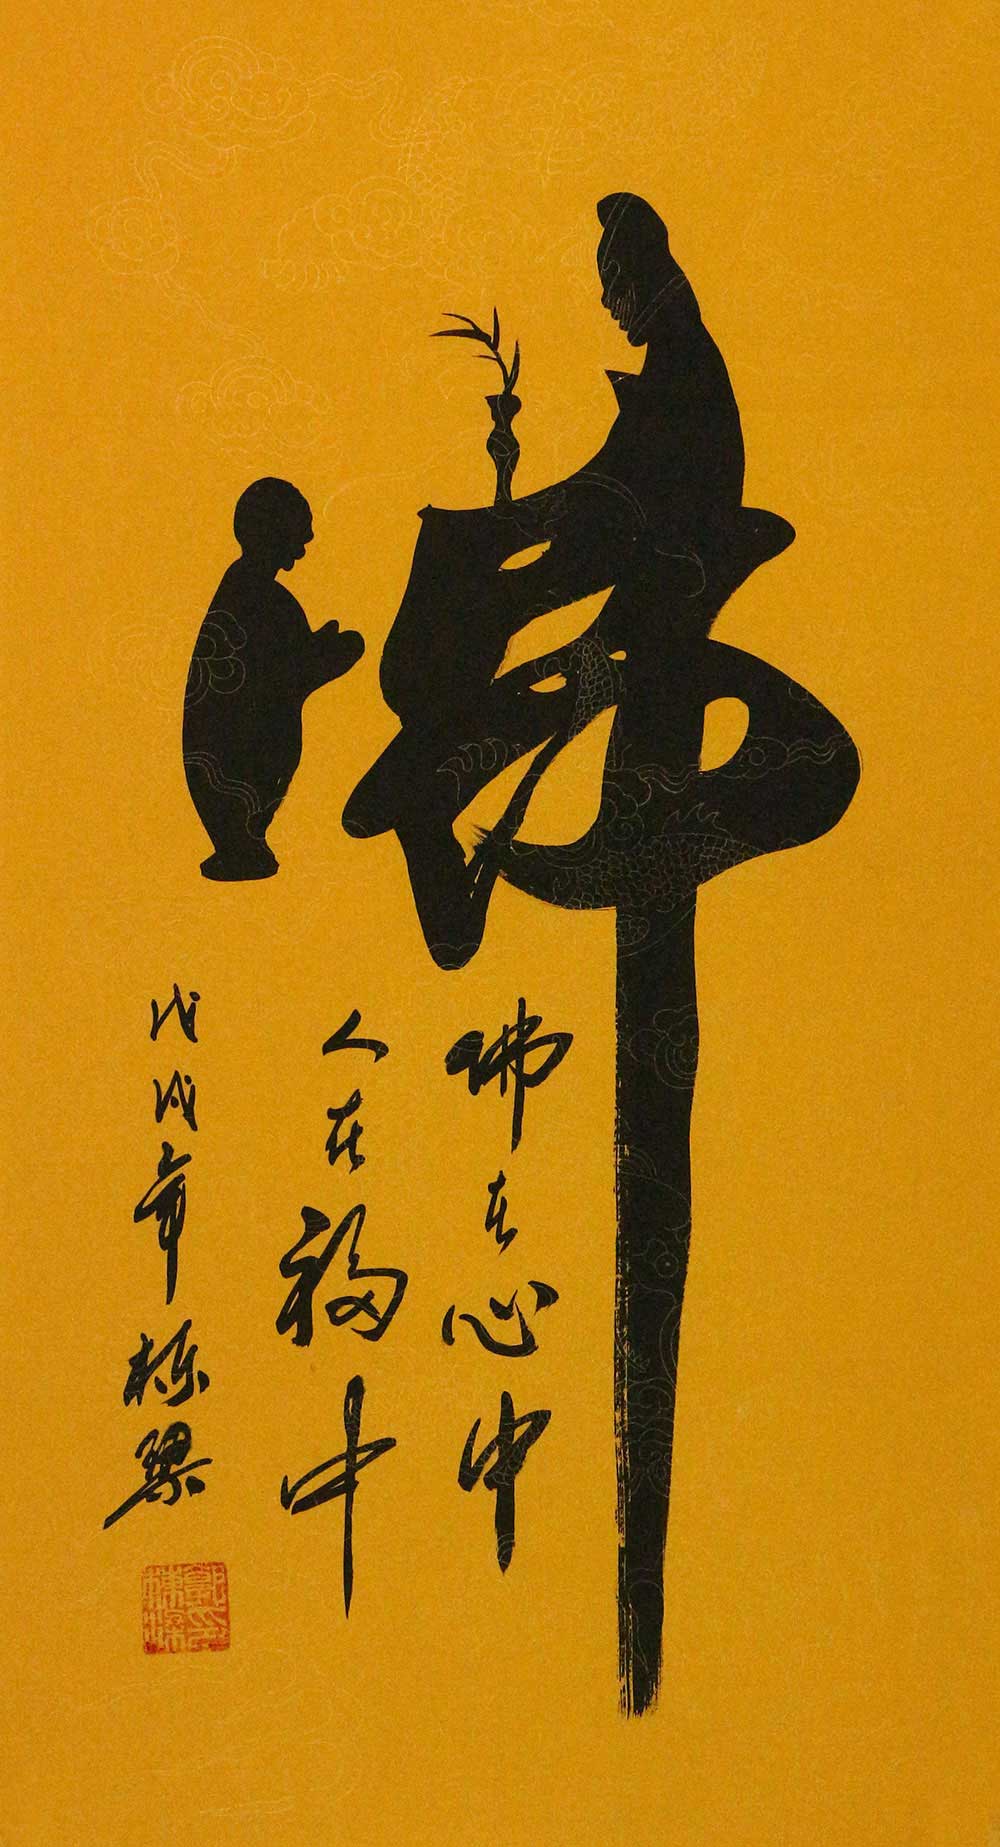 佛
佛在心中
人在福中
戊戌年 栋梁